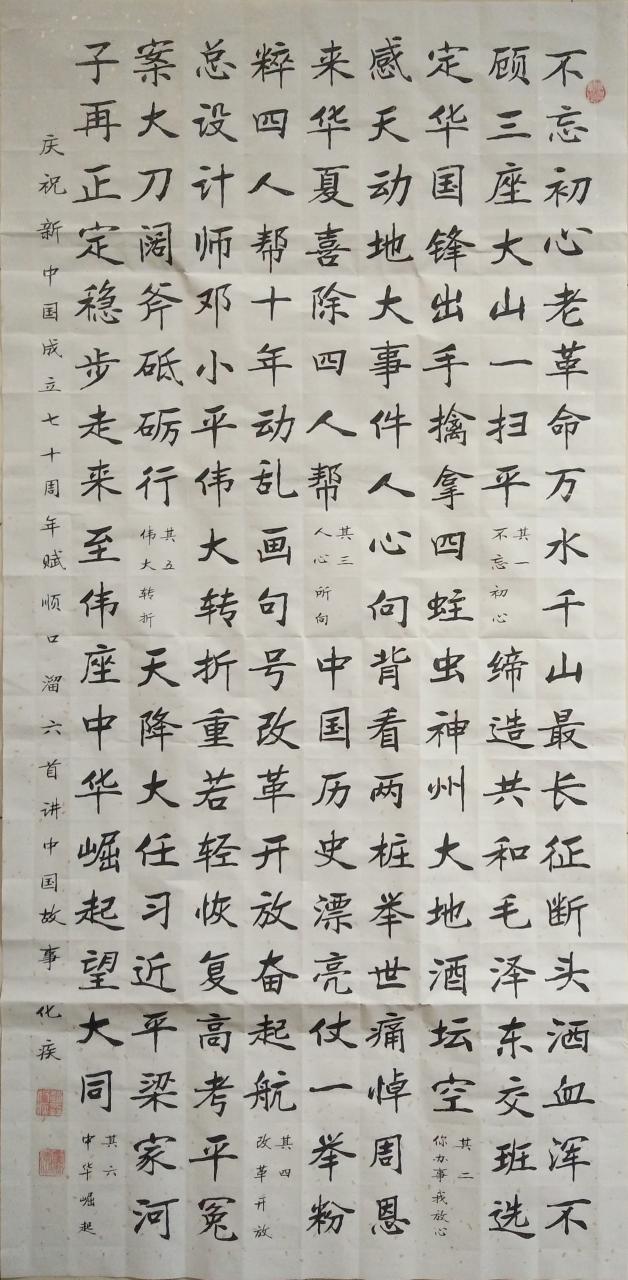 不忘初心老革命万水千山最长征断头洒血浑不
顾三座大山一扫平
其一
不忘初心
缔造共和毛泽东交班选
定华国锋出手擒拿四蛀虫神州大地酒坛空
其二
你办事我放心
感天动地大事件人心向背看两桩举世痛悼周恩
来华夏喜除四人帮
其三
人心所向
中国历史漂亮仗一举粉
粹四人帮十年动乱画句号改革开放奋起航
其四
改革开放
总设计师邓小平伟大转折重若轻恢复高考平冤
案大刀阔斧砥砺行
其五
伟大转折
天降大任习近平梁家河
子再正定稳步走来至伟座中华崛起望大同
其六
中华崛起
庆祝新中国成立七十周年赋顺口溜六首讲中国故事 化疾